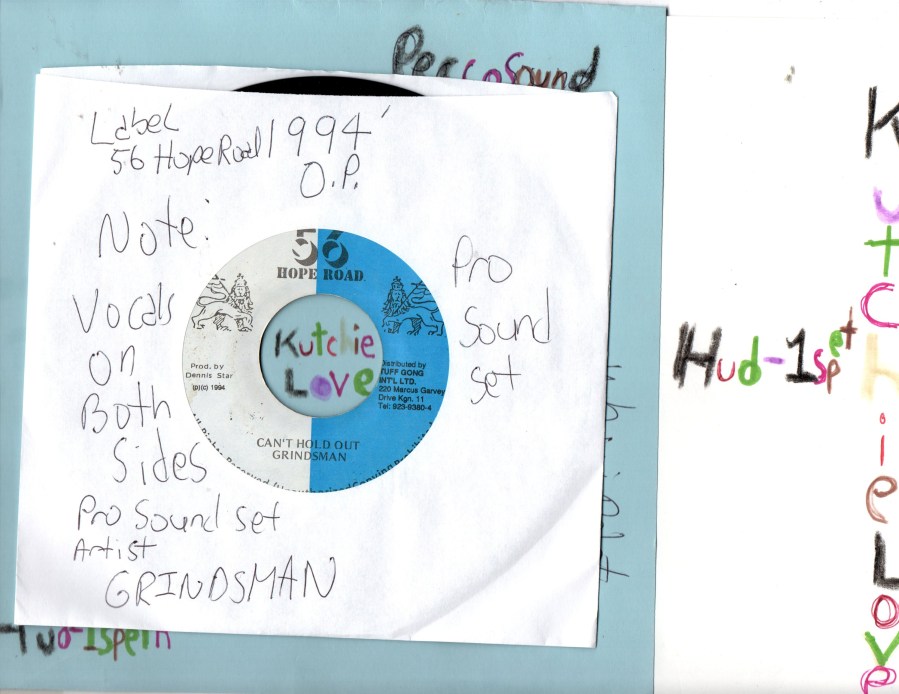 PercoSound
Label
56 Hope Road 1994'
O.P.
Note:
Vocals
on
Both
Sides
Pro Sound set
Artist
GRINDSMAN
Pro
Sound
set
56
HOPE ROAD
Prod. by
Dennis Star
(p)(c) 1994
Distributed by
TUFF GONG
INT'L LTD.
220 Marcus Garvey
Drive Kgn. 11
Tel: 923-9380-4
Kutchie
Love
CAN'T HOLD OUT
GRINDSMAN
Hud-1spet
Kutchie Love